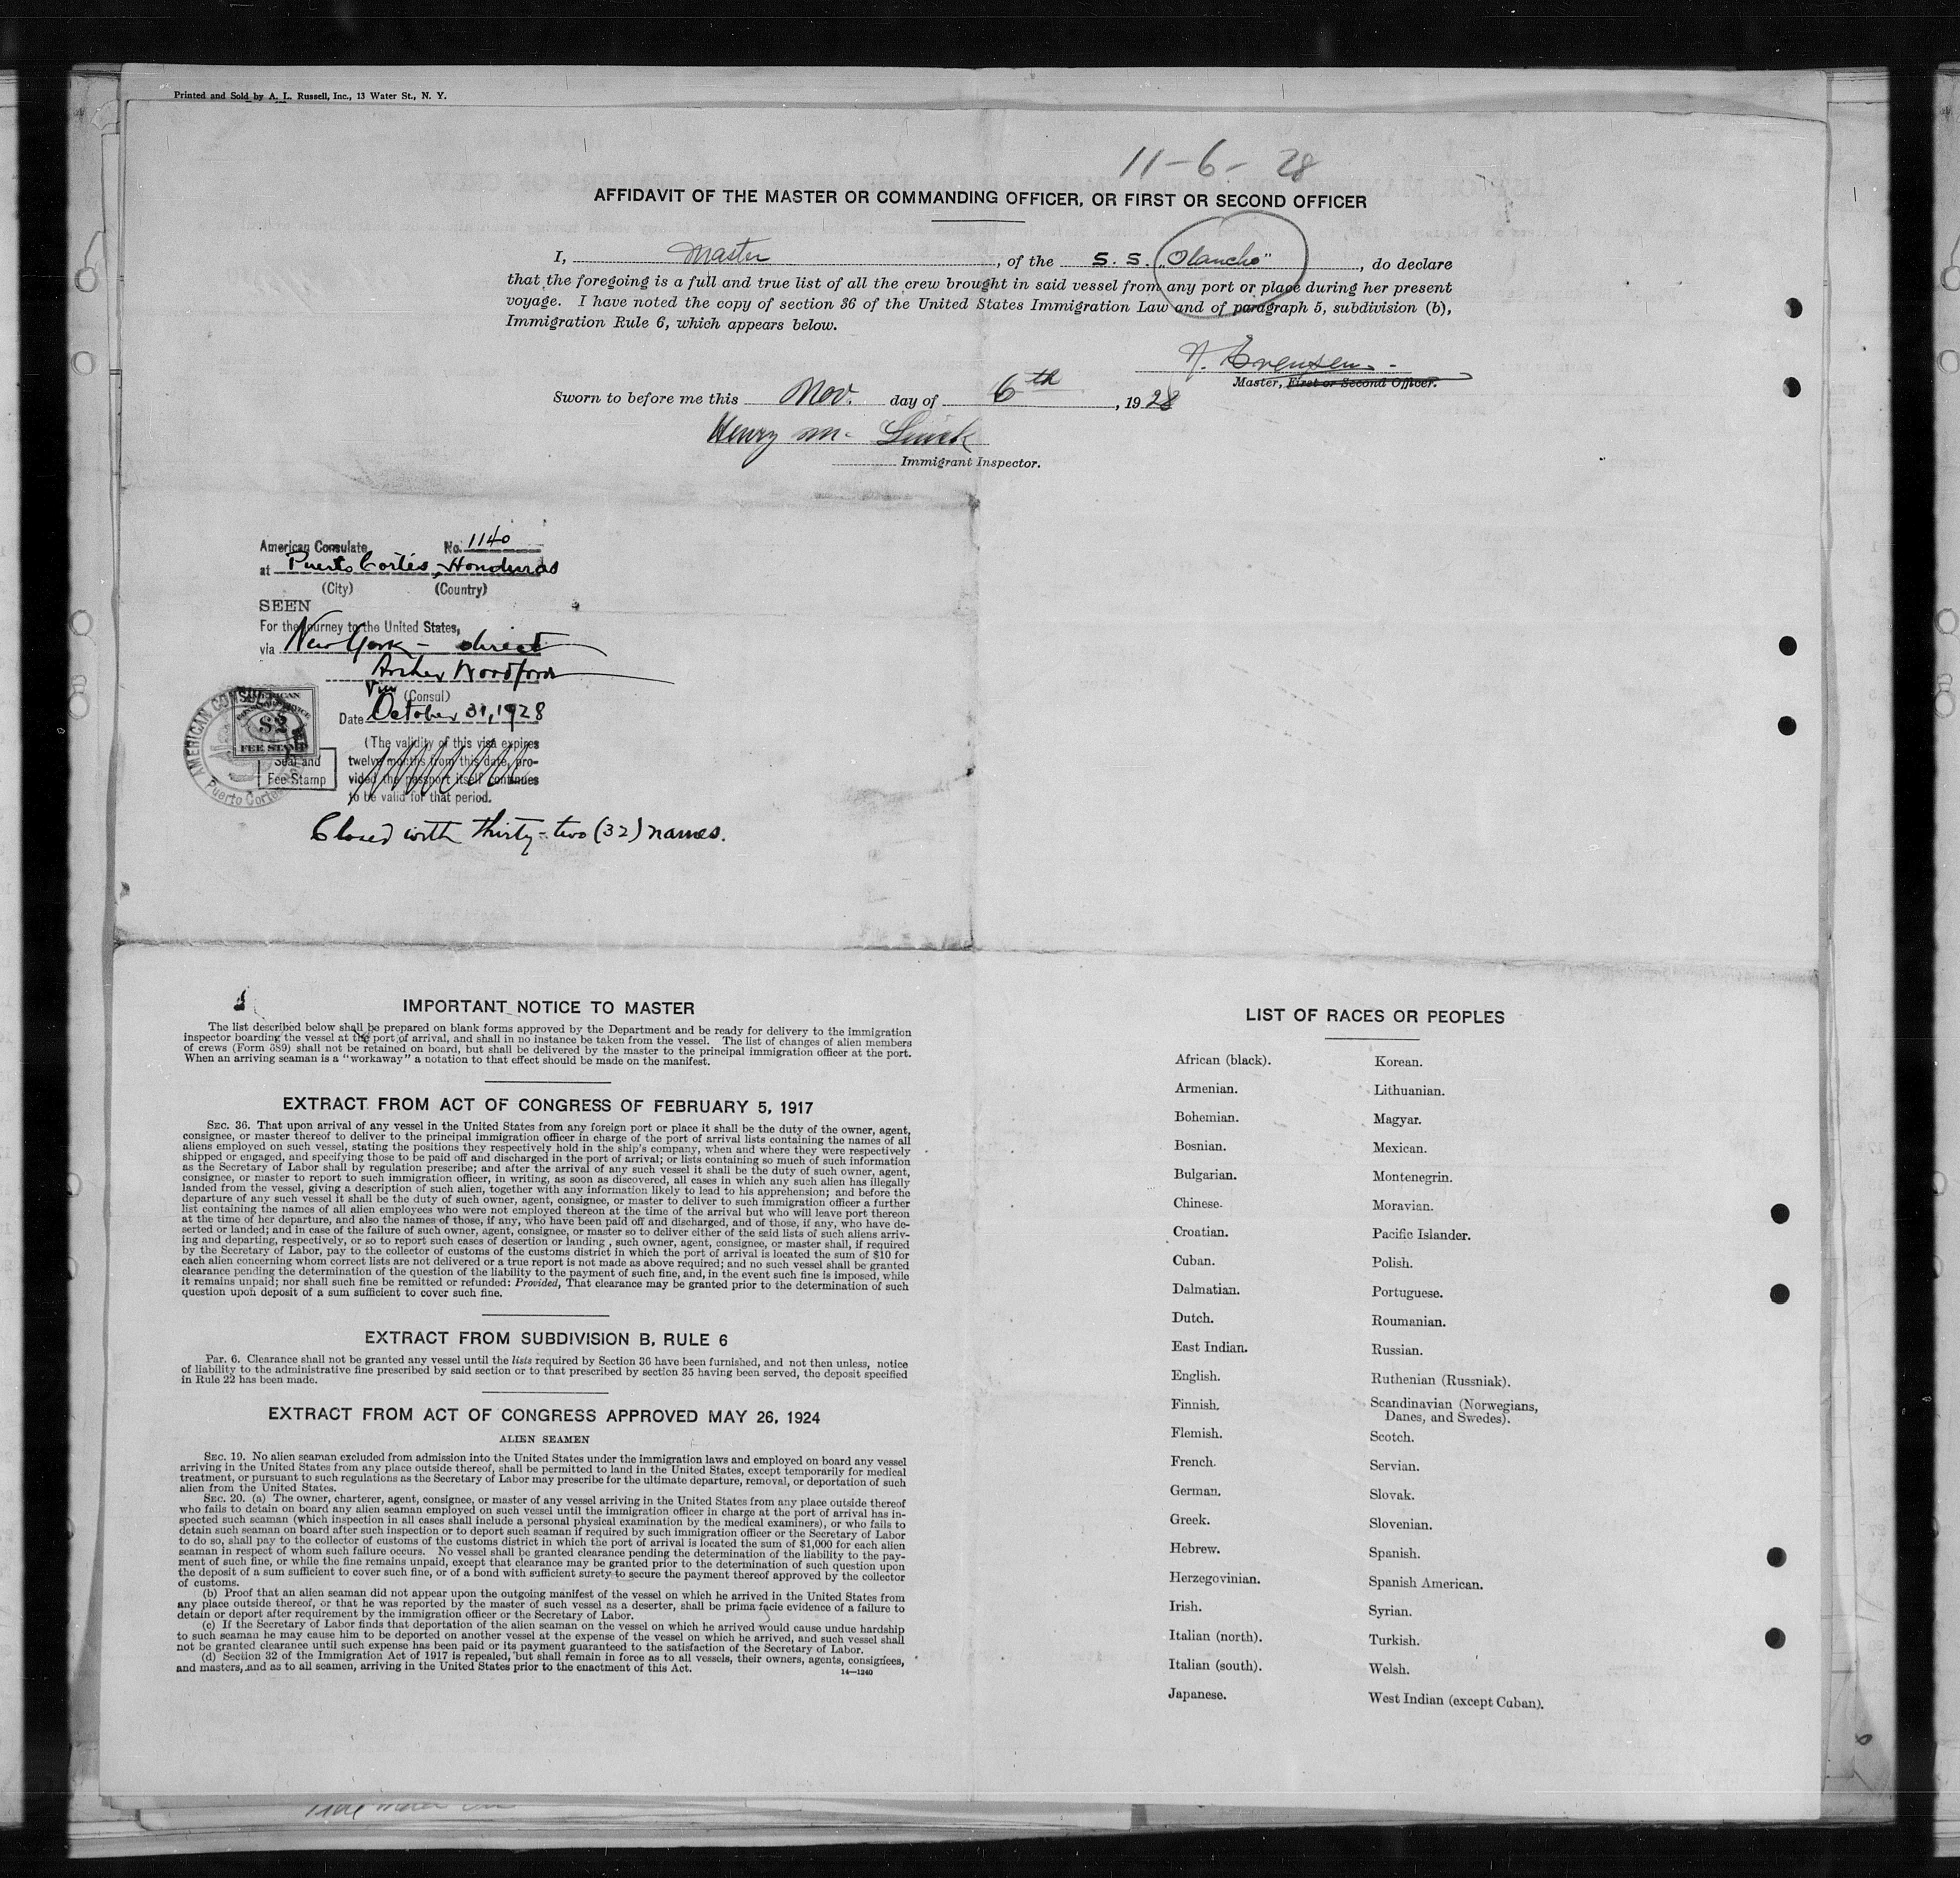 Printed and Sold by A. L. Russell, Inc., 13 Water St., N. Y.
11-6-28
AFFIDAVIT OF THE MASTER OR COMMANDING OFFICER, OR FIRST OR SECOND OFFICER
I, Master, of the S. S. "Olancho", do declare
that the foregoing is a full and true list of all the crew brought in said vessel from any port or place during her present
voyage. I have noted the copy of section 36 of the United States Immigration Law and of paragraph 5, subdivision (b),
Immigration Rule 6, which appears below.
Master, First or Second Officer.
Sworn to before me this Nov. day of 6th, 1928
Henry M.
Immigrant Inspector.
American Consulate No. 1140
at Puerto Cortés, Honduras
(City) (Country)
SEEN
For the journey to the United States,
via New York - direct
Archer Woodford
Vice (Consul)
Date October 31, 1928
AMERICAN CONSULATE
Puerto Cortes
$2
FEE STAMP
Seal and
Fee Stamp
(The validity of this visa expires
twelve months from this date, pro-
vided the passport itself continues
to be valid for that period.
Closed with thirty-two (32) names.
IMPORTANT NOTICE TO MASTER
The list described below shall be prepared on blank forms approved by the Department and be ready for delivery to the immigration
inspector boarding the vessel at the port of arrival, and shall in no instance be taken from the vessel. The list of changes of alien members
of crews (Form 689) shall not be retained on board, but shall be delivered by the master to the principal immigration officer at the port.
When an arriving seaman is a "workaway" a notation to that effect should be made on the manifest.
EXTRACT FROM ACT OF CONGRESS OF FEBRUARY 5, 1917
SEC. 36. That upon arrival of any vessel in the United States from any foreign port or place it shall be the duty of the owner, agent,
consignee, or master thereof to deliver to the principal immigration officer in charge of the port of arrival lists containing the names of all
aliens employed on such vessel, stating the positions they respectively hold in the ship's company, when and where they were respectively
shipped or engaged, and specifying those to be paid off and discharged in the port of arrival; or lists containing so much of such information
as the Secretary of Labor shall by regulation prescribe; and after the arrival of any such vessel it shall be the duty of such owner, agent,
consignee, or master to report to such immigration officer, in writing, as soon as discovered, all cases in which any such alien has illegally
landed from the vessel, giving a description of such alien, together with any information likely to lead to his apprehension; and before the
departure of any such vessel it shall be the duty of such owner, agent, consignee, or master to deliver to such immigration officer a further
list containing the names of all alien employees who were not employed thereon at the time of the arrival but who will leave port thereon
at the time of her departure, and also the names of those, if any, who have been paid off and discharged, and of those, if any, who have de-
serted or landed; and in case of the failure of such owner, agent, consignee, or master so to deliver either of the said lists of such aliens arriv-
ing and departing, respectively, or so to report such cases of desertion or landing, such owner, agent, consignee, or master shall, if required
by the Secretary of Labor, pay to the collector of customs of the customs district in which the port of arrival is located the sum of $10 for
each alien concerning whom correct lists are not delivered or a true report is not made as above required; and no such vessel shall be granted
clearance pending the determination of the question of the liability to the payment of such fine, and, in the event such fine is imposed, while
it remains unpaid; nor shall such fine be remitted or refunded: Provided, That clearance may be granted prior to the determination of such
question upon deposit of a sum sufficient to cover such fine.
EXTRACT FROM SUBDIVISION B, RULE 6
PAR. 6. Clearance shall not be granted any vessel until the lists required by Section 36 have been furnished, and not then unless, notice
of liability to the administrative fine prescribed by said section or to that prescribed by section 35 having been served, the deposit specified
in Rule 22 has been made.
EXTRACT FROM ACT OF CONGRESS APPROVED MAY 26, 1924
ALIEN SEAMEN
SEC. 19. No alien seaman excluded from admission into the United States under the immigration laws and employed on board any vessel
arriving in the United States from any place outside thereof, shall be permitted to land in the United States, except temporarily for medical
treatment, or pursuant to such regulations as the Secretary of Labor may prescribe for the ultimate departure, removal, or deportation of such
alien from the United States.
SEC. 20. (a) The owner, charterer, agent, consignee, or master of any vessel arriving in the United States from any place outside thereof
who fails to detain on board any alien seaman employed on such vessel until the immigration officer in charge at the port of arrival has in-
spected such seaman (which inspection in all cases shall include a personal physical examination by the medical examiners), or who fails to
detain such seaman on board after such inspection or to deport such seaman if required by such immigration officer or the Secretary of Labor
to do so, shall pay to the collector of customs of the customs district in which the port of arrival is located the sum of $1,000 for each alien
seaman in respect of whom such failure occurs. No vessel shall be granted clearance pending the determination of the liability to the pay-
ment of such fine, or while the fine remains unpaid, except that clearance may be granted prior to the determination of such question upon
the deposit of a sum sufficient to cover such fine, or of a bond with sufficient surety to secure the payment thereof approved by the collector
of customs.
(b) Proof that an alien seaman did not appear upon the outgoing manifest of the vessel on which he arrived in the United States from
any place outside thereof, or that he was reported by the master of such vessel as a deserter, shall be prima facie evidence of a failure to
detain or deport after requirement by the immigration officer or the Secretary of Labor.
(c) If the Secretary of Labor finds that deportation of the alien seaman on the vessel on which he arrived would cause undue hardship
to such seaman he may cause him to be deported on another vessel at the expense of the vessel on which he arrived, and such vessel shall
not be granted clearance until such expense has been paid or its payment guaranteed to the satisfaction of the Secretary of Labor.
(d) Section 32 of the Immigration Act of 1917 is repealed, but shall remain in force as to all vessels, their owners, agents, consignees,
and masters, and as to all seamen, arriving in the United States prior to the enactment of this Act.
14-1240
LIST OF RACES OR PEOPLES
African (black).
Armenian.
Bohemian.
Bosnian.
Bulgarian.
Chinese.
Croatian.
Cuban.
Dalmatian.
Dutch.
East Indian.
English.
Finnish.
Flemish.
French.
German.
Greek.
Hebrew.
Herzegovinian.
Irish.
Italian (north).
Italian (south).
Japanese.
Korean.
Lithuanian.
Magyar.
Mexican.
Montenegrin.
Moravian.
Pacific Islander.
Polish.
Portuguese.
Roumanian.
Russian.
Ruthenian (Russniak).
Scandinavian (Norwegians,
Danes, and Swedes).
Scotch.
Servian.
Slovak.
Slovenian.
Spanish.
Spanish American.
Syrian.
Turkish.
Welsh.
West Indian (except Cuban).